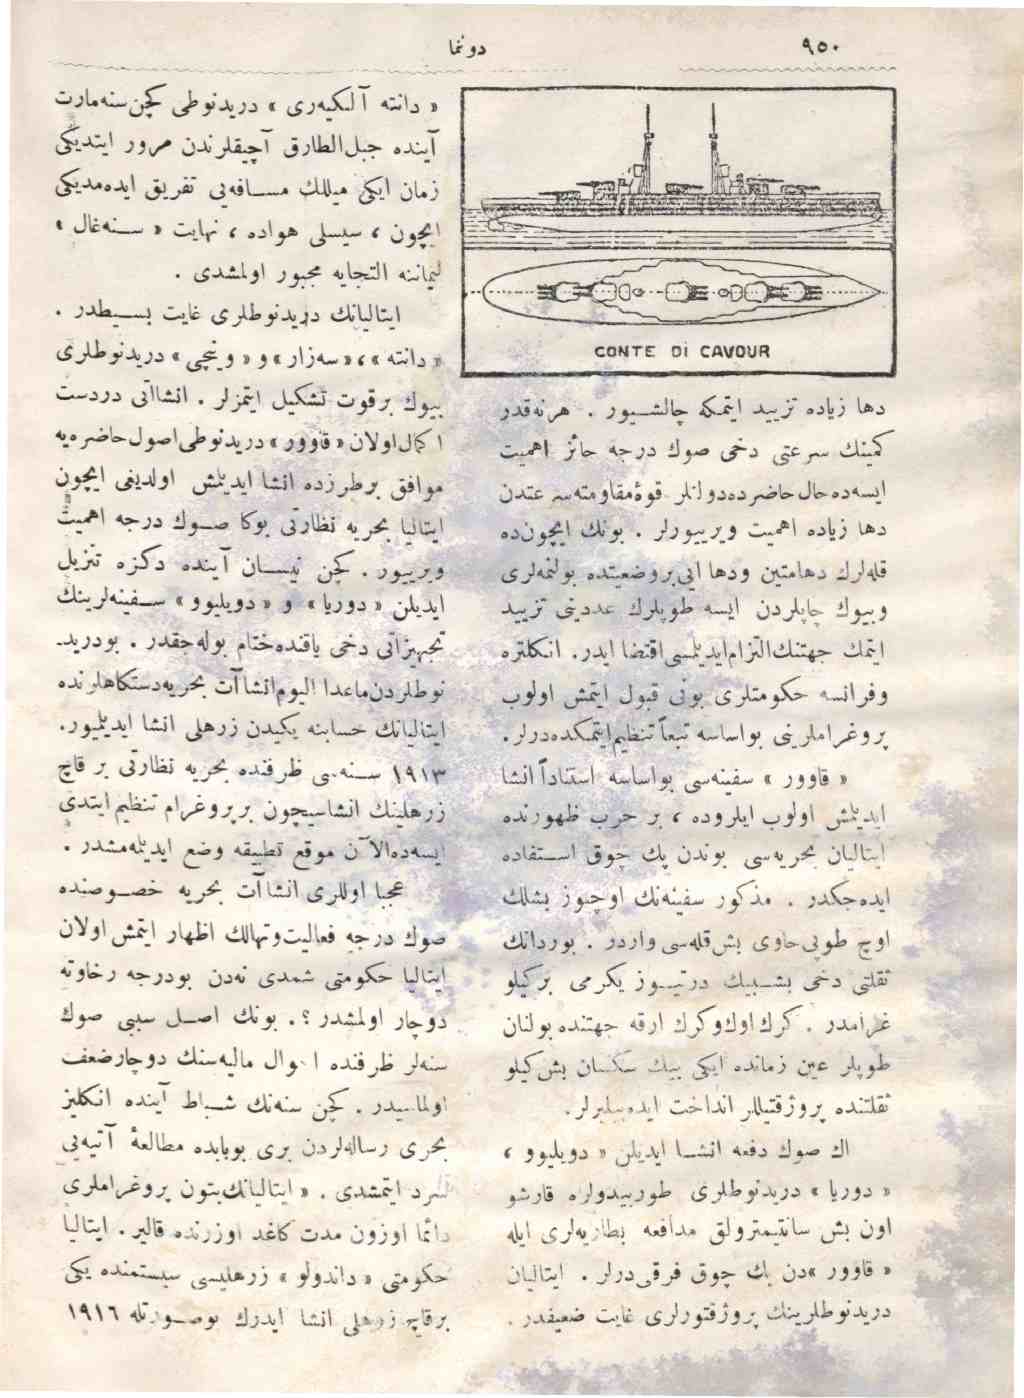 ٩٥٠
دونما
CONTE Di CAVOUR
دها زیاده تزیید ایتمکه چالشـیور . هرنه‌قدر
کمینك سرعتی دخی صوك درجه حائز اهمیت
ایسه‌ده حال حاضرده‌دولتلر قوۀمقاومته‌سرعتدن
دها زیاده اهمیت ویرییورلر . بونك ایچون‌ده
قله‌لرك دهامتین ودها ایی‌بروضعیتده بولنمه‌لری
وبیوك چاپلردن ایسه طوپلرك عددینی تزیید
ایتمك جهتنك‌التزام‌ایدیلمسی‌اقتضا ایدر. انکلتره
وفرانسه حکومتلری بونی قبول ایتمش اولوب
پروغراملرینی بواساسه تبعاً تنظیم‌ایتمکده‌درلر.
« قاوور » سفینه‌سی بواساسه استناداً انشا
ایدیلمش اولوب ایلروده ، بر حرب ظهورنده
ایتالیان بحریه‌سی بوندن پك چوق اسـتفاده
ایده‌جکدر . مذکور سفینه‌نك اوچیوز بشلك
اوچ طوپی‌حاوی بش‌قله‌سی واردر . بوردانك
ثقلتی دخی بشـبیك درتیـوز یکرمی برکیلو
غرامدر . کرك اوك‌وکرك ارقه جهتنده بولنان
طوپلر عین زمانده ایکی بیك سکسان بش‌کیلو
ثقلتنده پروژقتیللر انداخت ایده‌بیلیرلر.
اك صوك دفعه انشـا ایدیلن « دویلیوو ،
« دوریا » دریدنوطلری طورپیدولره قارشو
اون بش سانتیمترولق مدافعه بطاریه‌لری ایله
« قاوور »دن پك چوق فرقی‌درلر . ایتالیان
دریدنوطلرینك پروژقتورلری غایت ضعیفدر .
« دانته آلیکیه‌ری » دریدنوطی کچن‌سنه‌مارت
آینده جبل‌الطارق آچیقلرندن مرور ایتدیکی
زمان ایکی میللك مسـافه‌یی تفریق ایده‌مدیکی
ایچون ، سیسلی هواده ، نهایت « سـنه‌غال »
لیماننه التجایه مجبور اولمشدی .
ایتالیانك دریدنوطلری غایت بسـیطدر .
« دانته »،« سه‌زار »و « وینچی » دریدنوطلری
بیوك برقوت تشکیل ایتمزلر . انشاآتی دردست
اکمال‌اولان « قاوور » دریدنوطی‌اصول‌حاضره‌یه
موافق برطرزده انشا ایدیلمش اولدیغی ایچون
ایتالیا بحریه نظارتی بوکا صـوك درجه اهمیت
ویرییور. کچن نیسـان آینده دکزه تنزیل
ایدیلن « دوریا » و « دویلیوو » سـفینه‌لرینك
تجهیزاتی دخی یاقنده‌ختام بوله‌جقدر . بودرید-
نوطلردن‌ماعدا الیوم‌انشاآت بحریه‌دستکاهلرنده
ایتالیانك حسابنه یکیدن زرهلی انشا ایدیلمیور.
١٩١٣ سـنه‌سی ظرفنده بحریه نظارتی بر قاچ
زرهلینك انشاسیچون برپروغرام تنظیم ایتدی
ایسه‌ده‌الاآن موقع تطبیقه وضع ایدیلمه‌مشدر .
عجبا اوللری انشاآت بحریه خصـوصنده
صوك درجه فعالیت‌وتهالك اظهار ایتمش اولان
ایتالیا حکومتی شمدی نه‌دن بودرجه رخاوته
دوچار اولمشدر ؟. بونك اصـل سببی صوك
سنه‌لر ظرفنده احوال مالیه‌سنك دوچارضعف
اولماسیدر . کچن سنه‌نك شـباط آینده انکلیز
بحری رساله‌لردن بری بوبابده مطالعۀ آتیه‌یی
سرد ایتمشدی . « ایتالیانك‌بتون پروغراملری
دائما اوزون مدت کاغد اوزرنده قالیر . ایتالیا
حکومتی « داندولو » زرهلیسی سیستمنده یکی
برقاچ زرهلی انشا ایدرك بوصـورتله ١٩١٦